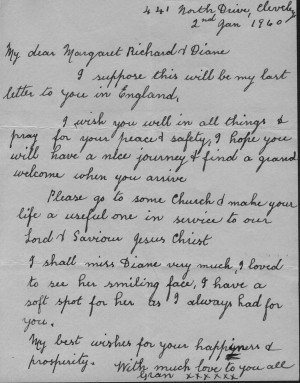 441 North Drive, Cleveleys
2nd Jan 1960
My dear Margaret Richard & Diane
I suppose this will be my last
letter to you in England,
I wish you well in all things &
pray for your peace & safety, I hope you
will have a nice journey & find a grand
welcome when you arrive
Please go to some Church & make your
life a useful one in service to our
Lord & Saviour Jesus Christ
I shall miss Diane very much, I loved
to see her smiling face, I have a
soft spot for her as I always had for
you.
My best wishes for your happiness &
prosperity. With much love to you all
Gran xxxxxx